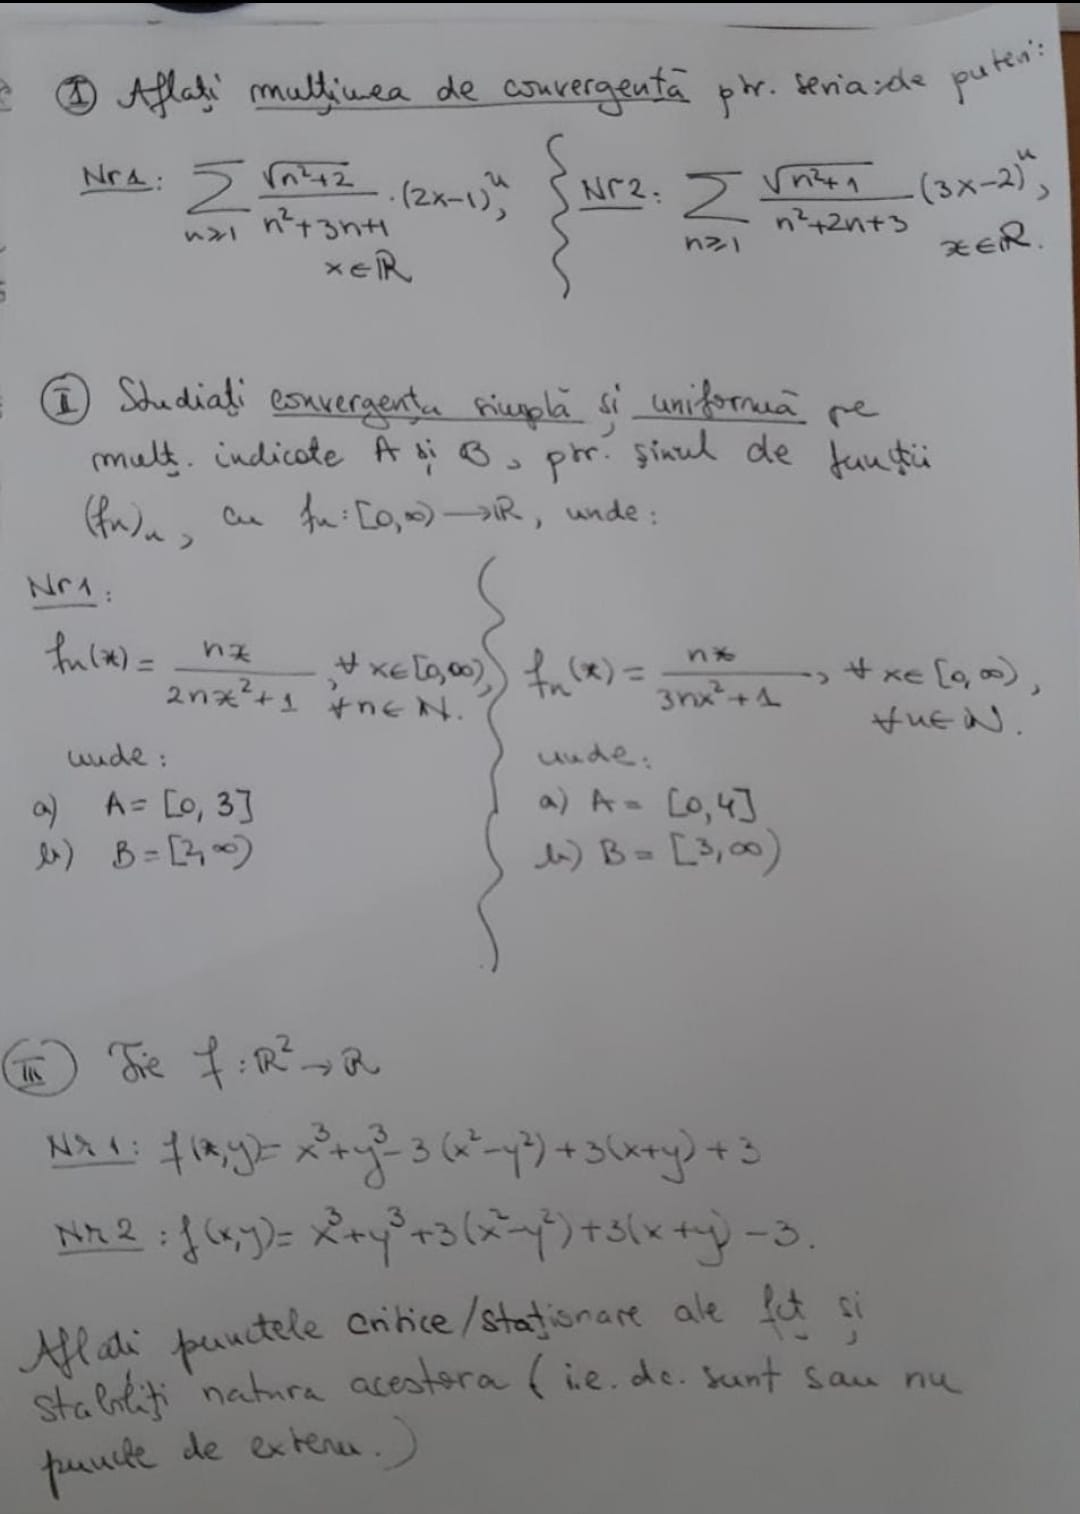 ① Aflați mulțimea de convergență ptr. seria de puteri:
Nr 1: ∑_{n≥1} √(n²+2) / (n²+3n+1) · (2x-1)ⁿ, x∈ℝ
Nr 2: ∑_{n≥1} √(n²+1) / (n²+2n+3) (3x-2)ⁿ, x∈ℝ.
② Studiați convergența simplă și uniformă pe
mulț. indicate A și B, ptr. șirul de funcții
(fn)n, cu fn: [0,∞) → ℝ, unde:
Nr 1:
fn(x) = nx / (2nx²+1), ∀ x∈[0,∞), ∀ n∈ℕ.
unde:
a) A = [0, 3]
b) B = [2,∞)
fn(x) = nx / (3nx²+1), ∀ x∈[0,∞), ∀ n∈ℕ.
unde:
a) A = [0,4]
b) B = [3,∞)
Ⅲ Fie f: ℝ² → ℝ
Nr 1: f(x,y) = x³+y³-3(x²-y²)+3(x+y)+3
Nr 2: f(x,y) = x³+y³+3(x²-y²)+3(x+y)-3.
Aflați punctele critice/staționare ale fct și
stabiliți natura acestora (i.e. dc. sunt sau nu
puncte de extrem.)